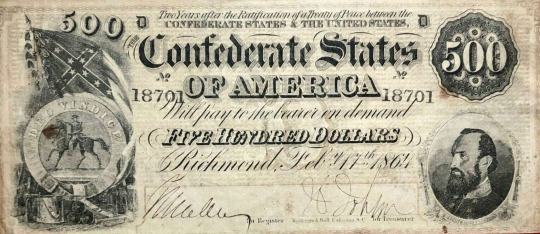 500 D Two Years after the Ratification of a Treaty of Peace between the D
CONFEDERATE STATES & THE UNITED STATES,
THE Confederate States 500
No OF AMERICA No
18701 18701
Will pay to the bearer on demand
FIVE HUNDRED DOLLARS
Richmond, Feb. 17th 1864
DEO VINDICE
for Register for Treasurer